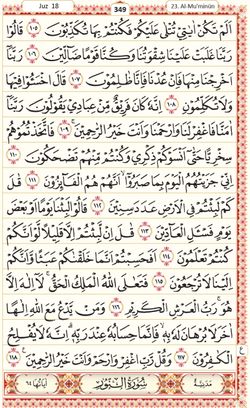 Juz 18 349 23. Al-Mu'minūn
اَلَمْ تَكُنْ اٰيٰتِيْ تُتْلٰى عَلَيْكُمْ فَكُنْتُمْ بِهَا تُكَذِّبُوْنَ ١٠٥ قَالُوْا
رَبَّنَا غَلَبَتْ عَلَيْنَا شِقْوَتُنَا وَكُنَّا قَوْمًا ضَآلِّيْنَ ١٠٦ رَبَّنَآ
اَخْرِجْنَا مِنْهَا فَاِنْ عُدْنَا فَاِنَّا ظٰلِمُوْنَ ١٠٧ قَالَ اخْسَـُٔوْا فِيْهَا
وَلَا تُكَلِّمُوْنِ ١٠٨ اِنَّهٗ كَانَ فَرِيْقٌ مِّنْ عِبَادِيْ يَقُوْلُوْنَ رَبَّنَآ
اٰمَنَّا فَاغْفِرْ لَنَا وَارْحَمْنَا وَاَنْتَ خَيْرُ الرّٰحِمِيْنَ ١٠٩ فَاتَّخَذْتُمُوْهُمْ
سِخْرِيًّا حَتّٰٓى اَنْسَوْكُمْ ذِكْرِيْ وَكُنْتُمْ مِّنْهُمْ تَضْحَكُوْنَ ١١٠
اِنِّيْ جَزَيْتُهُمُ الْيَوْمَ بِمَا صَبَرُوْٓا اَنَّهُمْ هُمُ الْفَآئِزُوْنَ ١١١ قٰلَ
كَمْ لَبِثْتُمْ فِى الْاَرْضِ عَدَدَ سِنِيْنَ ١١٢ قَالُوْا لَبِثْنَا يَوْمًا اَوْ بَعْضَ
يَوْمٍ فَسْـَٔلِ الْعَآدِّيْنَ ١١٣ قٰلَ اِنْ لَّبِثْتُمْ اِلَّا قَلِيْلًا لَّوْ اَنَّكُمْ
كُنْتُمْ تَعْلَمُوْنَ ١١٤ اَفَحَسِبْتُمْ اَنَّمَا خَلَقْنٰكُمْ عَبَثًا وَّاَنَّكُمْ
اِلَيْنَا لَا تُرْجَعُوْنَ ١١٥ فَتَعٰلَى اللّٰهُ الْمَلِكُ الْحَقُّ لَآ اِلٰهَ اِلَّا
هُوَ رَبُّ الْعَرْشِ الْكَرِيْمِ ١١٦ وَمَنْ يَّدْعُ مَعَ اللّٰهِ اِلٰهًا
اٰخَرَ لَا بُرْهَانَ لَهٗ بِهٖ فَاِنَّمَا حِسَابُهٗ عِنْدَ رَبِّهٖ اِنَّهٗ لَا يُفْلِحُ
الْكٰفِرُوْنَ ١١٧ وَقُلْ رَّبِّ اغْفِرْ وَارْحَمْ وَاَنْتَ خَيْرُ الرّٰحِمِيْنَ ١١٨
مَدَنِيَّة سُوْرَةُ النُّوْرِ اٰيَاتُهَا ٦٤